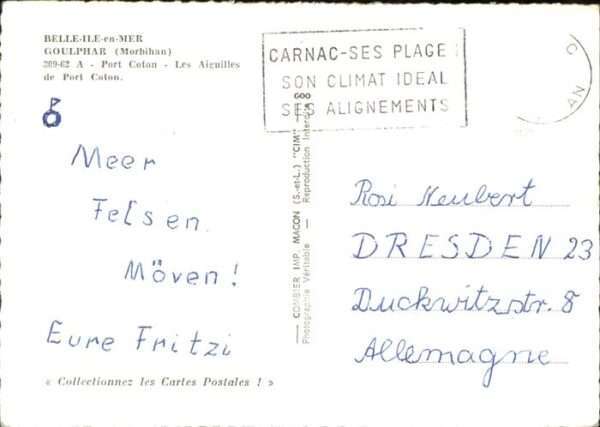 BELLE-ILE-en-MER
GOULPHAR (Morbihan)
209-62 A - Port Coton - Les Aiguilles
de Port Coton.
CARNAC-SES PLAGE
SON CLIMAT IDEAL
SES ALIGNEMENTS
Meer
Felsen
Möven!
Eure Fritzi
« Collectionnez les Cartes Postales ! »
— COMBIER IMP. MACON (S.-et-L.) "CIM"
Photographie Véritable — Reproduction Interdite
Rosi Neubert
DRESDEN 23
Duckwitzstr. 8
Allemagne